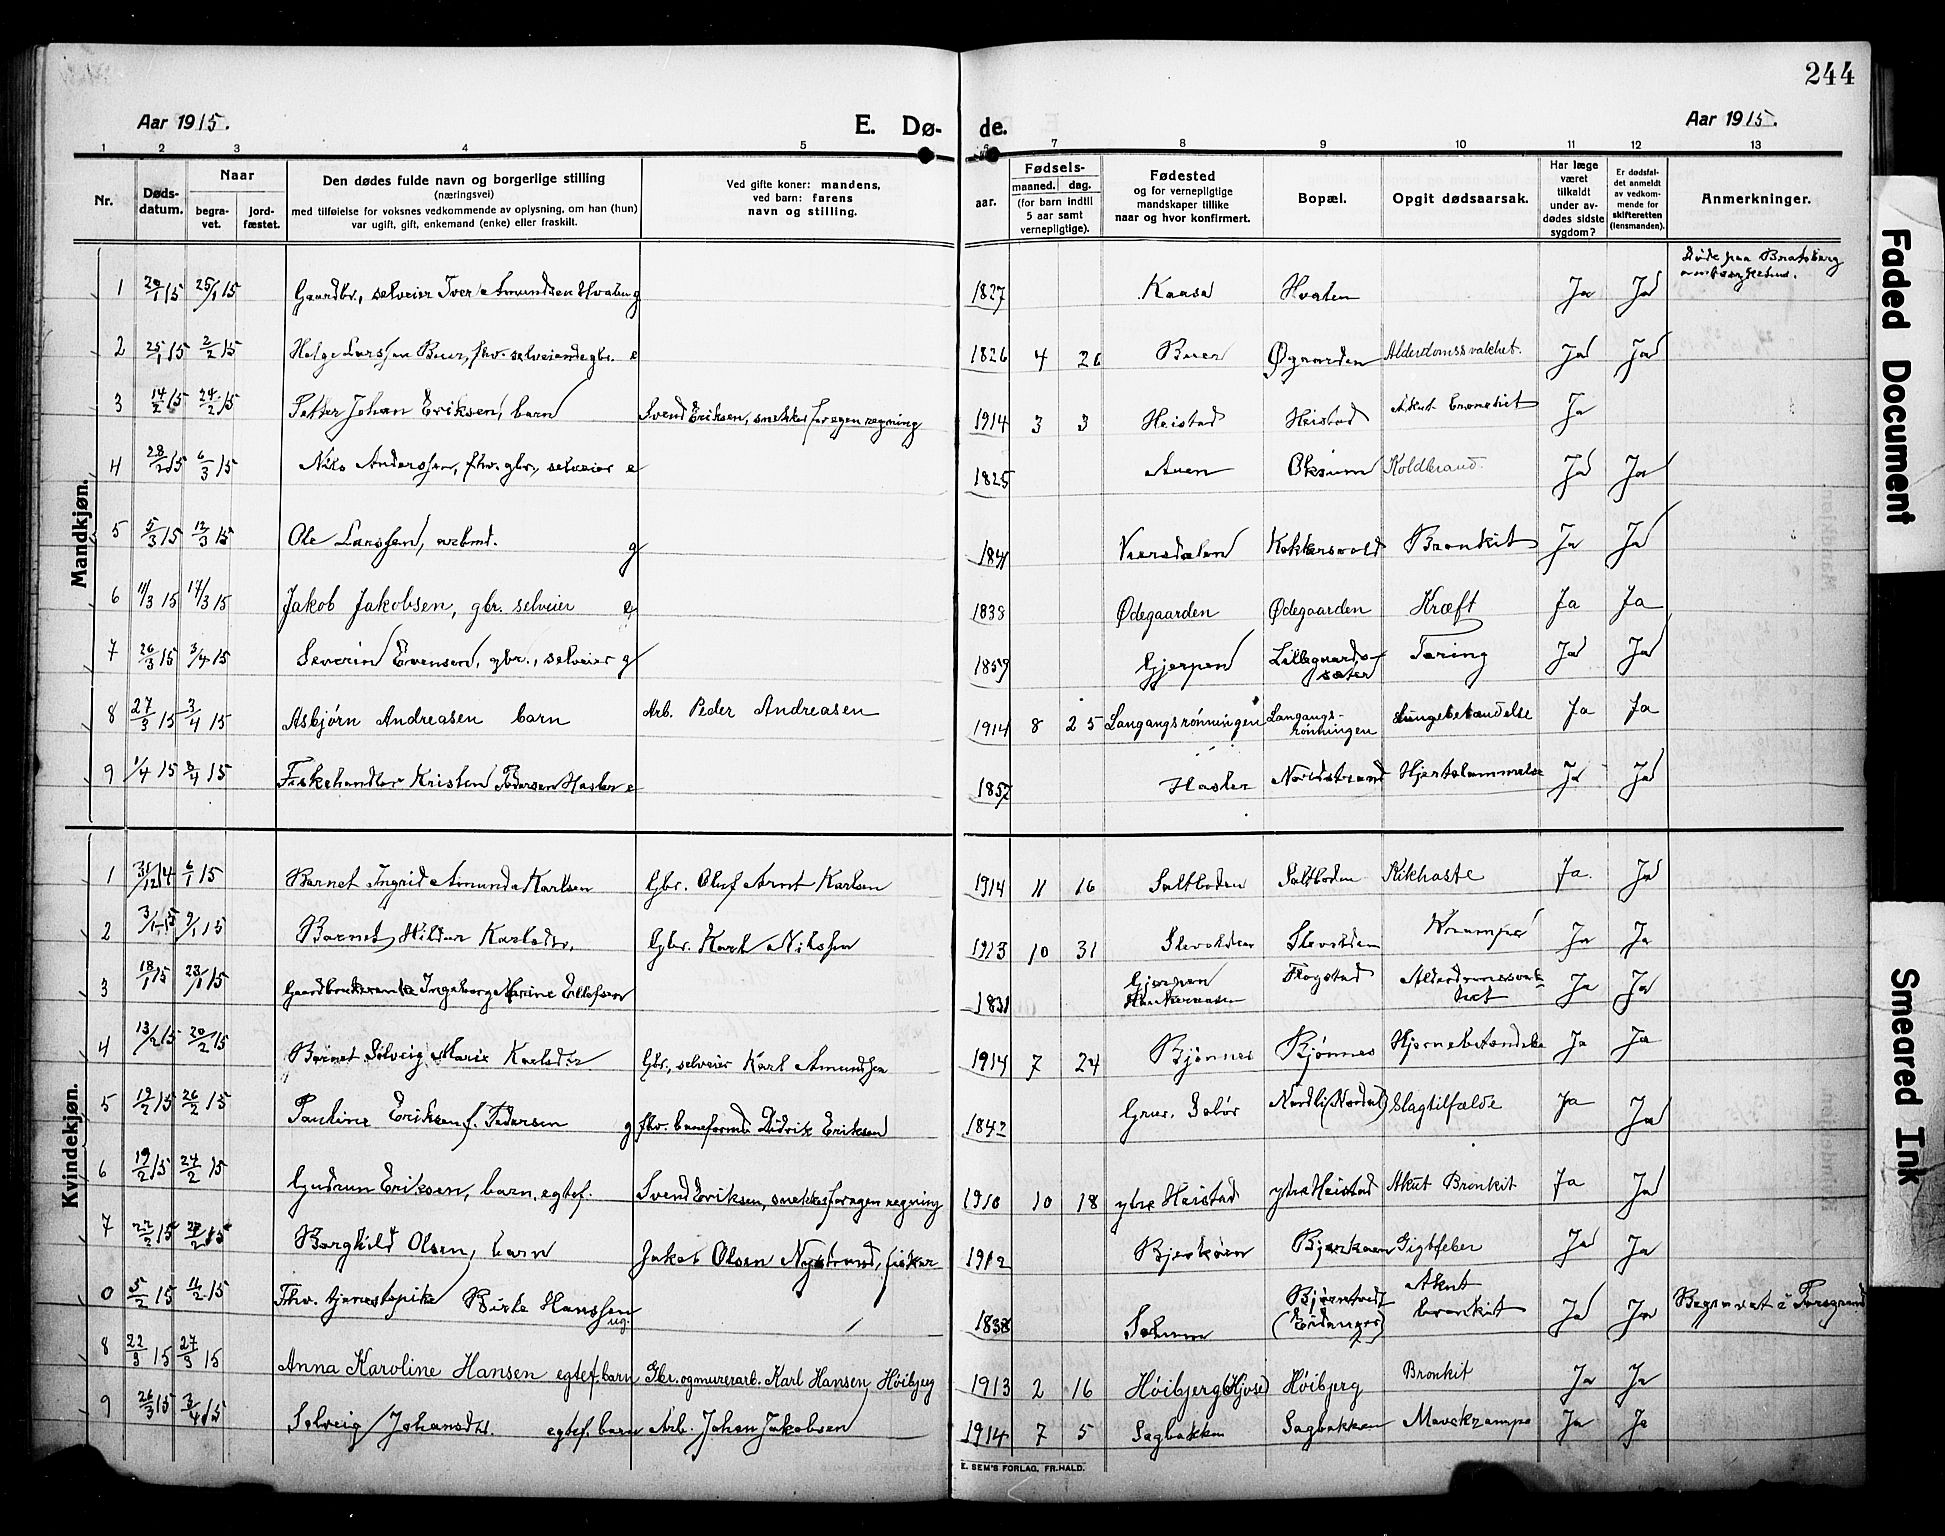 244
Aar 1915.
E. Dø-
de.
Aar 1915.
1 2 3 4 5 6 7 8 9 10 11 12 13
Nr.
Døds-
datum.
Naar
begra-
vet.
jord-
fæstet.
Den dødes fulde navn og borgerlige stilling
(næringsvei)
med tilføielse for voksnes vedkommende av oplysning, om han (hun)
var ugift, gift, enkemand (enke) eller fraskilt.
Ved gifte koner: mandens,
ved barn: farens
navn og stilling.
Fødsels-
aar.
maaned. dag.
(for barn indtil
5 aar samt
vernepligtige).
Fødested
og for vernepligtige
mandskaper tillike
naar og hvor konfirmert.
Bopæl.
Opgit dødsaarsak.
Har læge
været
tilkaldt
under av-
dødes sidste
sygdom?
Er dødsfal-
det anmeldt
av vedkom-
mende for
skifteretten
(lensmanden).
Anmerkninger.
Mandkjøn.
1 20/1 15 25/1 15 Gaardbr., selveier Iver Amundsen Hvalen g 1827 Kaasa Hvalen Ja Ja Døde paa Bratsberg
2 25/1 15 2/2 15 Helge Larssen Buer, fhv. selveiende gbr. e 1826 4 26 Buer Øgaarden Alderdomssvakhet. Ja Ja
3 14/2 15 24/2 15 Petter Johan Eriksen, barn Svend Eriksen, snekker for egen regning 1914 3 3 Heistad Heistad Akut bronchit Ja
4 28/2 15 6/3 15 Nils Anderssen, fhv. gbr., selveier e 1825 Auen Oksum Koldbrand. Ja Ja
5 5/3 15 12/3 15 Ole Larssen, arbmd. g 1841 Versdalen Kokkersvold Bronkit Ja Ja
6 11/3 15 17/3 15 Jakob Jakobsen, gbr. selveier g 1838 Ødegaarden Ødegaarden Kræft Ja Ja
7 26/3 15 3/4 15 Severin Evensen, gbr., selveier g 1859 Gjerpen Lillegaards-
sæter Tæring Ja Ja
8 27/3 15 3/4 15 Asbjørn Andreasen barn Arb. Peder Andreasen 1914 8 25 Langangsrønningen Langangs-
rønningen Lungebetændelse Ja Ja
9 1/4 15 8/4 15 Fiskehandler Kristen Pedersen Hasler e 1857 Hasler Nordstrand Hjertelammelse Ja Ja
Kvindekjøn.
1 31/12 14 6/1 15 Barnet Ingrid Amunda Karlsen Gbr. Oluf Arnt Karlsen 1914 11 16 Saltboden Saltboden Kikhoste Ja. Ja
2 3/1 15 9/1 15 Barnet Hildur Karlsdtr. Gbr. Karl Nilssen 1913 10 31 Slevolden Slevolden Krampe Ja Ja
3 18/1 15 23/1 15 Gaardbrukerenke Ingeborg Marine Ellefsen 1831 Gjerpen Flogstad Alderdomssvak-
het Ja Ja
4 13/2 15 20/2 15 Barnet Solveig Marie Karlsdtr Gbr., selveier Karl Amundsen 1914 7 24 Bjønnes Bjønnes Hjernebetændelse Ja Ja
5 19/2 15 26/2 15 Pauline Eriksen f. Pedersen g fhv. baneformd. Didrik Eriksen 1842 Grue, Solør Nordli (Nordal) Slagtilfælde Ja Ja
6 19/2 15 24/2 15 Gudrun Eriksen, barn, egtef. Svend Eriksen, snekker for egen regning 1910 10 18 ytre Heistad ytre Heistad Akut Bronkit Ja Ja
7 22/2 15 27/2 15 Borghild Olsen, barn Jakob Olsen Nystrand, fisker 1912 Bjerkøen Bjerkøen Gigtfeber Ja Ja
0 5/2 15 11/2 15 Fhv. tjenestepike Birte Hanssen
ug. 1838 Solum Bjørntvedt
(Eidanger) Akut
bronkit Ja Ja Begravet i Porsgrund
8 22/3 15 27/3 15 Anna Karoline Hansen egtef. barn Gbr. og murerarb. Karl Hansen Høibjerg 1913 2 16 Høibjerg (Kjose) Høibjerg Bronkit Ja Ja
9 26/3 15 3/4 15 Solveig Johansdtr. egtef. barn Arb. Johan Jakobsen 1914 7 5 Sagbakken Sagbakken Mavekrampe Ja Ja
E. SEM'S FORLAG, FR.HALD.
Faded Document
Smeared Ink